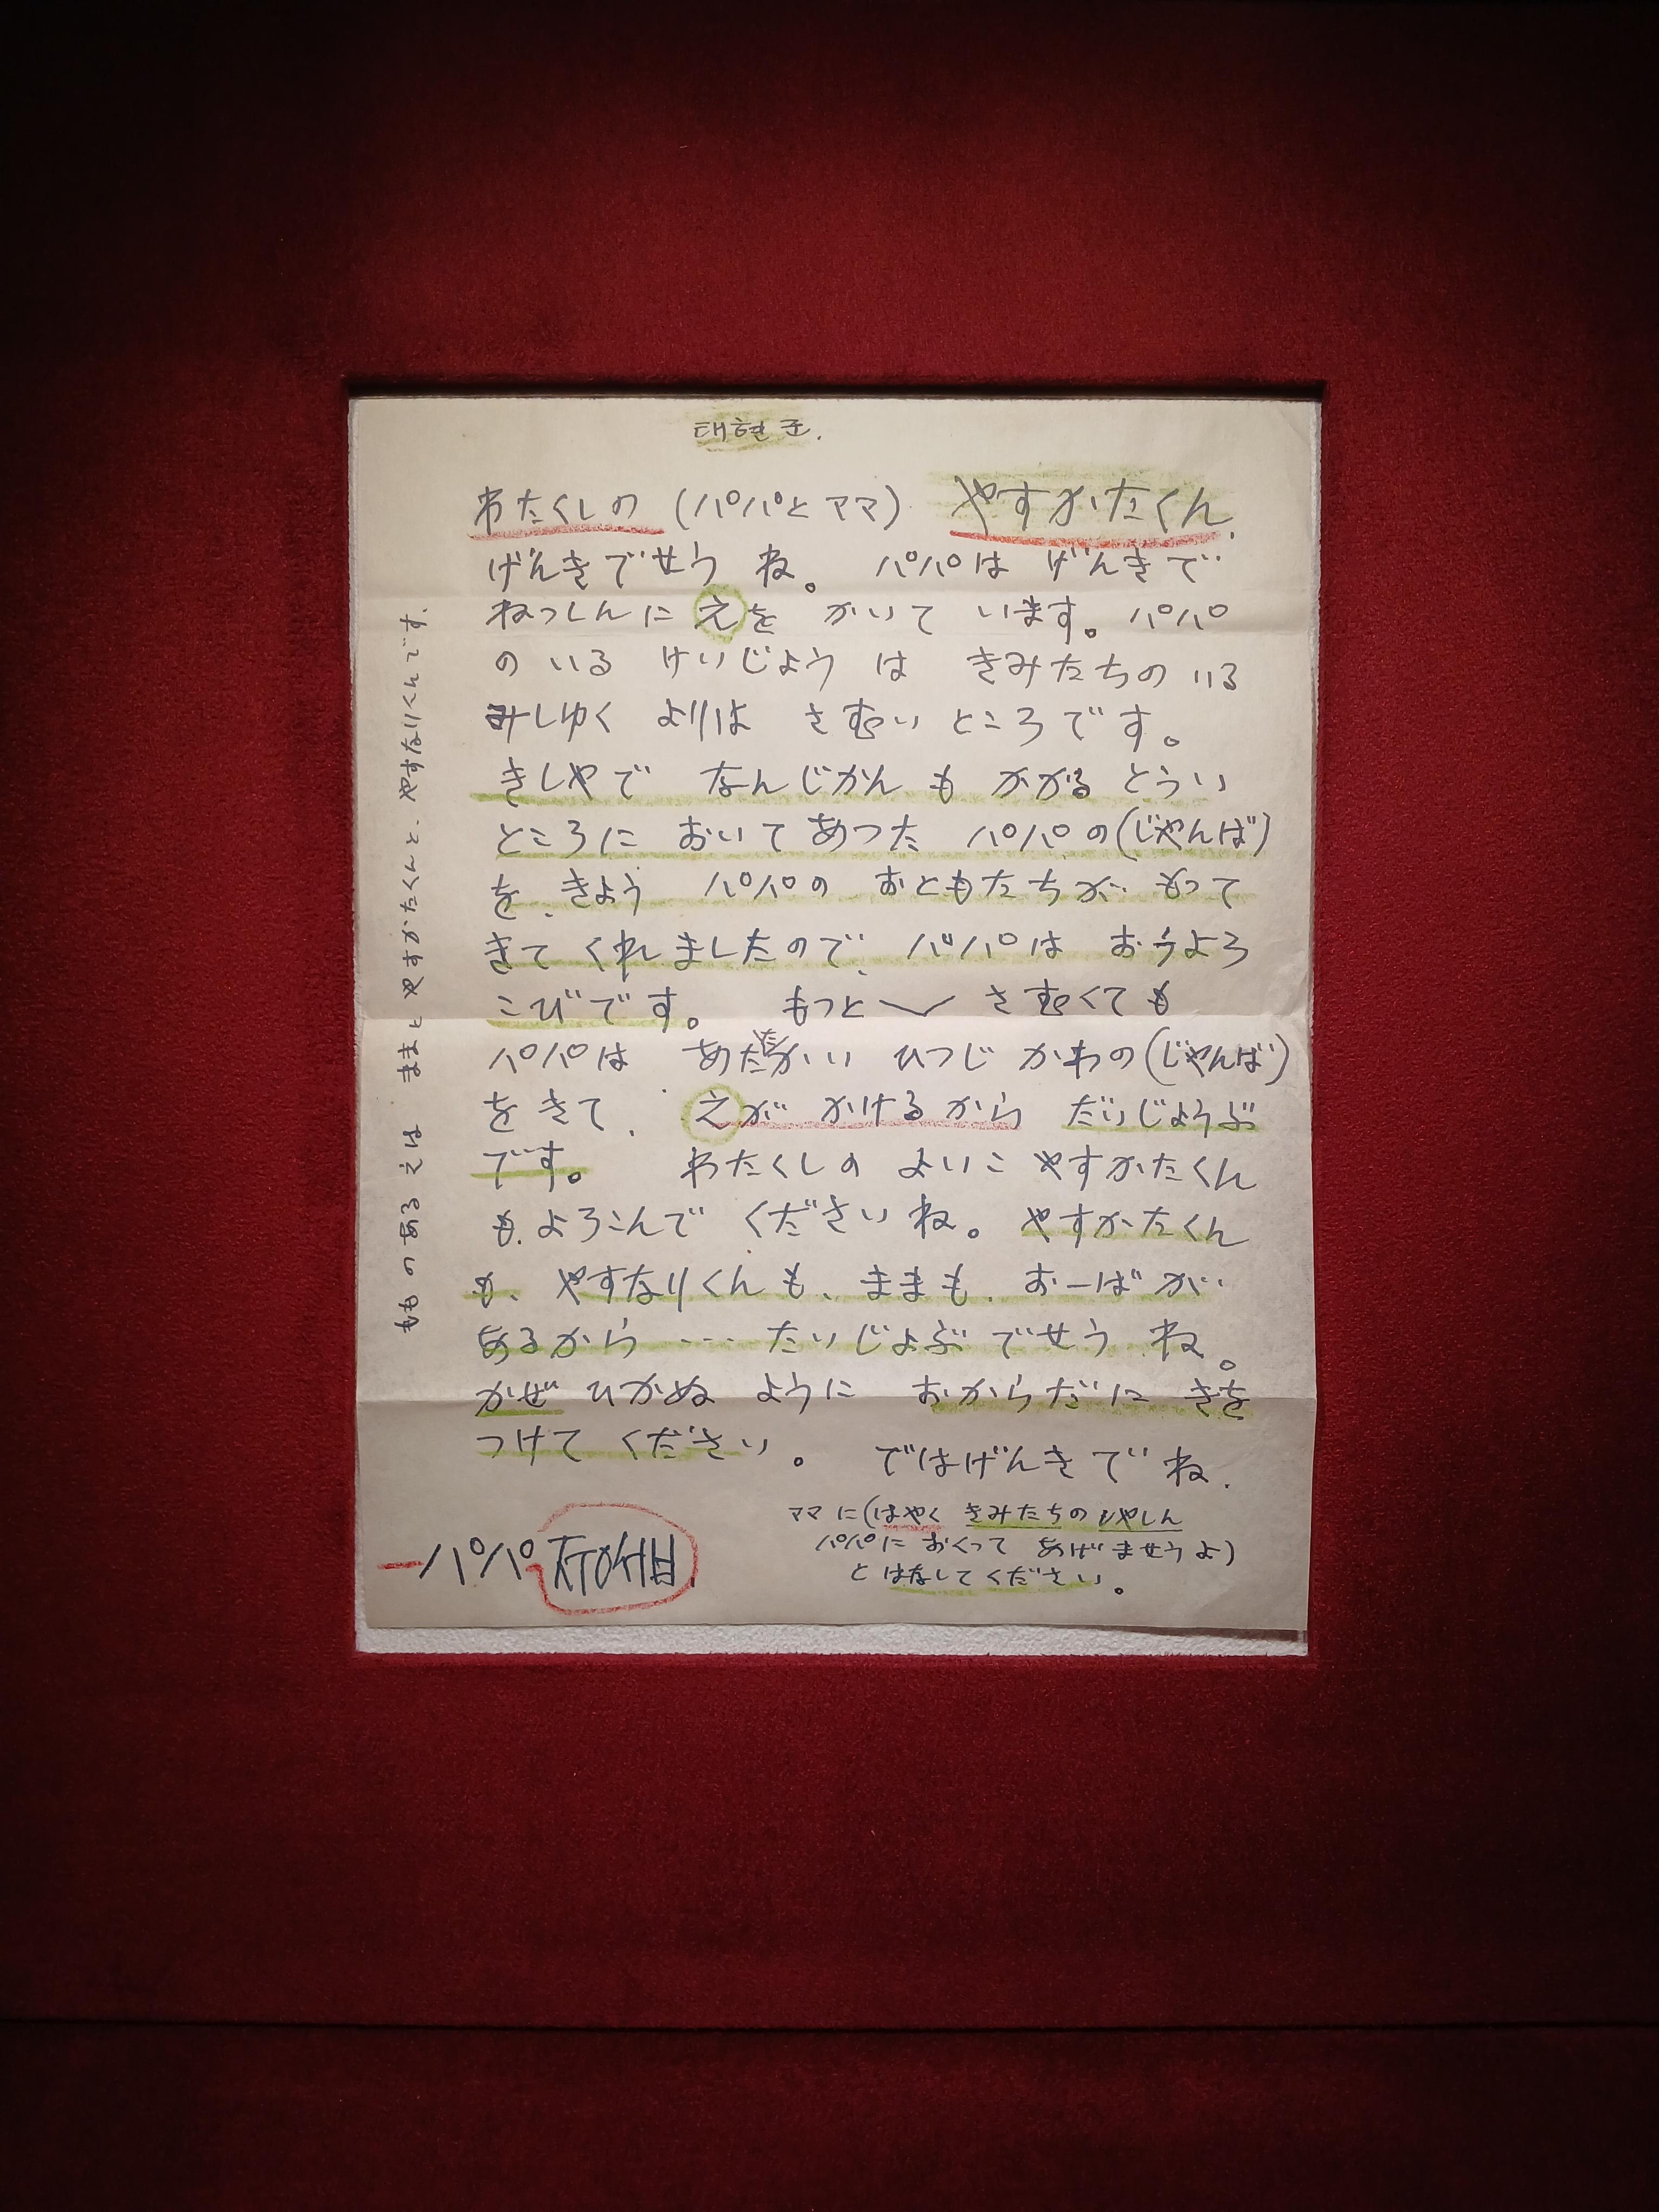 태현군.
わたくしの (パパとママ) やすかたくん.
げんきでせう ね。 パパは げんきで
ねっしんに えを かいて います。パパ
の いる けいじょう は きみたちの いる
みしゆく よりは さむい ところです。
きしやで なんじかん も かがる とうい
ところに おいて あつた パパの(じやんば)
を、きよう パパの おともたちが もって
きて くれましたので、 パパは おうよろ
こびです。 もつと〵〳 さむくても
パパは あたたかい ひつじ かわの(じやんば)
をきて、 えが かけるから だいじようぶ
です。 わたくしの よいこ やすかたくん
も、よろこんで くださいね。 やすかたくん
も、やすなりくんも、ままも、おーばが
あるから・・・たいじょぶ でせう ね。
かぜ ひかぬ ように おからだに きを
つけて ください。 ではげんきで ね.
ママに(はやく きみたちの しやしん
パパに おくって あげませうよ)
と はなして ください。
パパ
もものある えは ままと やすかたくんと、やすなりくんです.